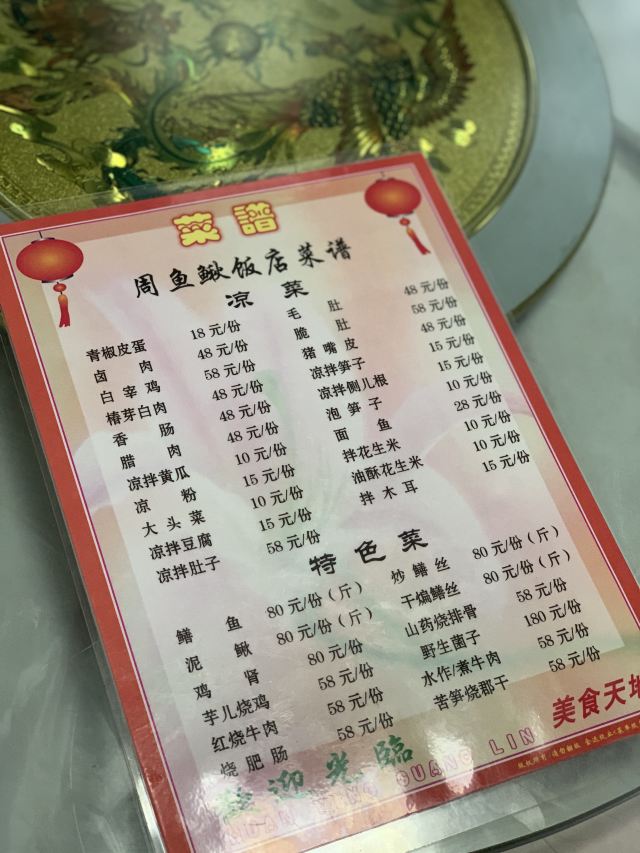 菜譜
周鱼鳅饭店菜谱
凉 菜
青椒皮蛋 18 元/份
卤 肉 48 元/份
白 宰 鸡 58 元/份
椿芽白肉 48 元/份
香 肠 48 元/份
腊 肉 48 元/份
凉拌黄瓜 10 元/份
凉 粉 15 元/份
大 头 菜 10 元/份
凉拌豆腐 15 元/份
凉拌肚子 58 元/份
毛 肚 48 元/份
脆 肚 58 元/份
猪 嘴 皮 48 元/份
凉拌笋子 15 元/份
凉拌侧儿根 15 元/份
泡 笋 子 10 元/份
面 鱼 28 元/份
拌花生米 10 元/份
油酥花生米 10 元/份
拌 木 耳 15 元/份
特 色 菜
鳝 鱼 80 元/份（斤）
泥 鳅 80 元/份（斤）
鸡 肾 80 元/份
芋儿烧鸡 58 元/份
红烧牛肉 58 元/份
烧 肥 肠 58 元/份
炒 鳝 丝 80 元/份（斤）
干煸鳝丝 80 元/份（斤）
山药烧排骨 58 元/份
野生菌子 180 元/份
水作/煮牛肉 58 元/份
苦笋烧郡干 58 元/份
欢迎光临
HUAN YING GUANG LIN
美食天地
版权所有·请勿翻版